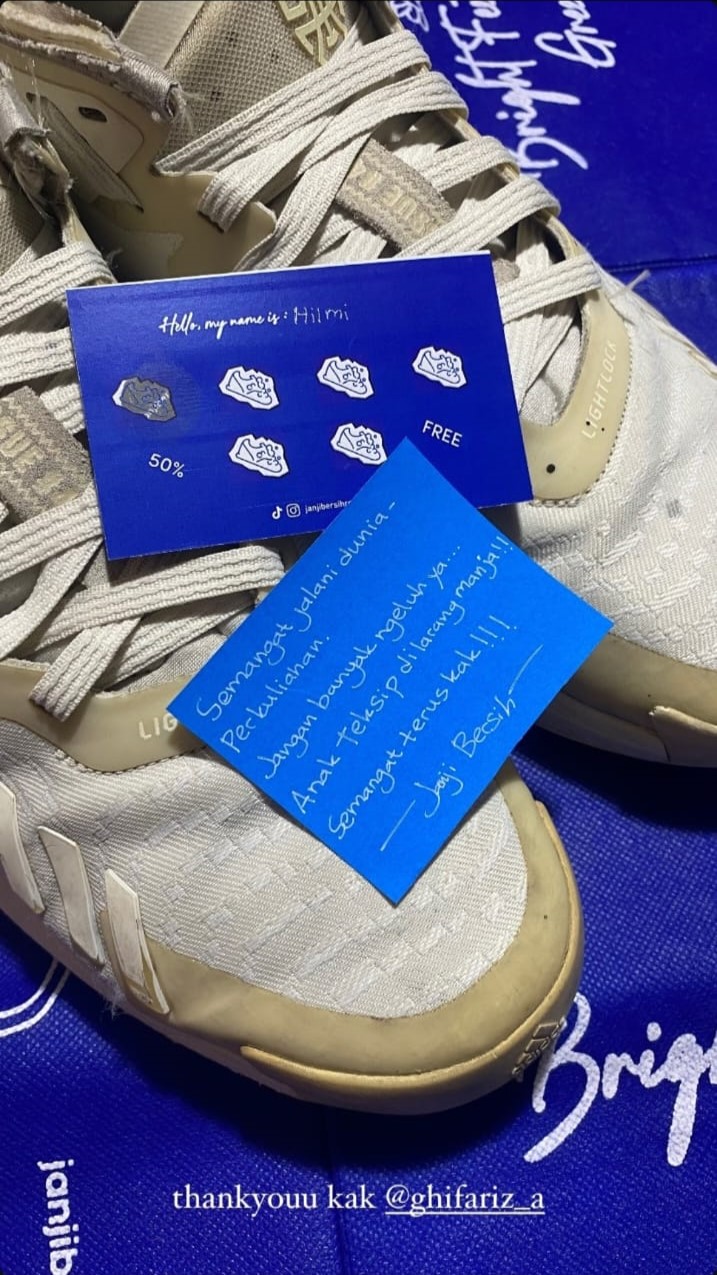 Bright Fa
Gra
LIGHTLOCK
Hello, my name is : Hilmi
50%
FREE
janjibersih
Semangat jalani dunia-
Perkuliahan.
Jangan banyak ngeluh ya...
Anak teksip dilarang manja!!
Semangat terus kak!!!!
— Janji Bersih —
LIG
Brig
janjib
thankyouu kak @ghifariz_a